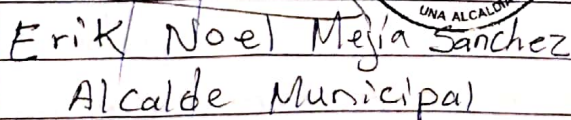 UNA ALCALDÍ
Erik Noel Mejía Sánchez
Alcalde Municipal